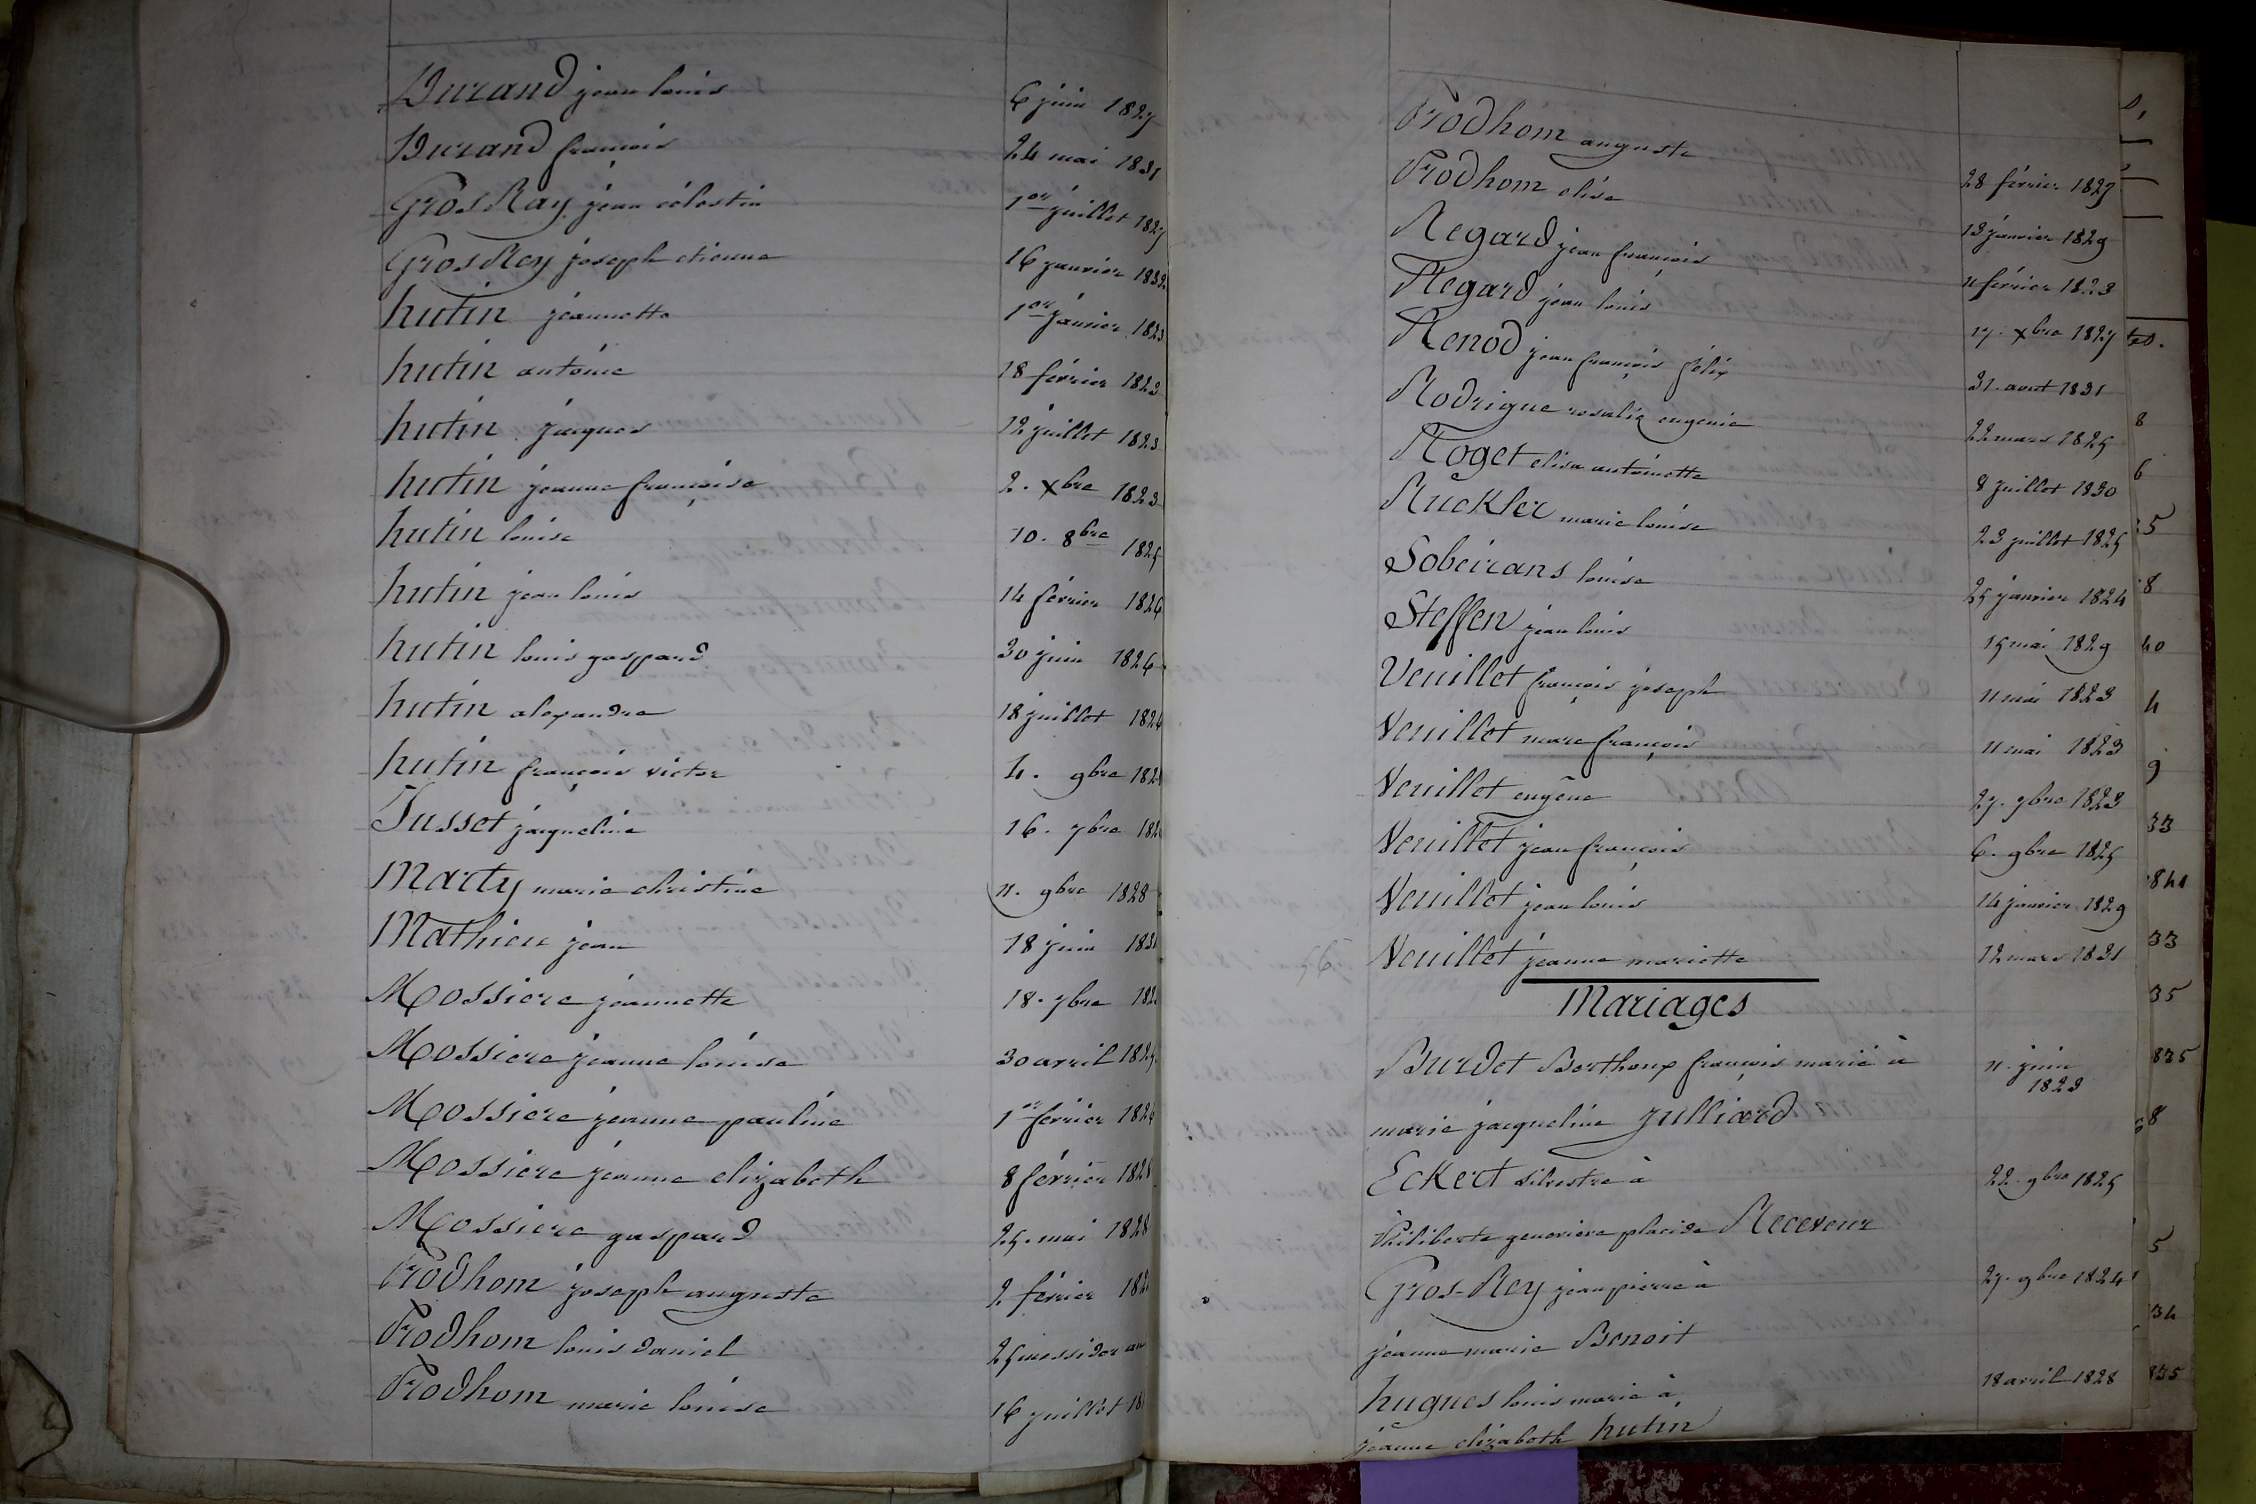 Durand jean louis 6 juin 1827
Durand françois 24 mai 1831
Gros Ray jean célestin 1er juillet 1827
Gros Rey joseph etienne 16 janvier 1832
hutin jeannette 1er janvier 1823
hutin antoine 18 février 1823
hutin jacques 12 juillet 1823
hutin jeanne françoise 2. xbre 1823
hutin louise 10. 8bre 1825
hutin jean louis 14 février 1826
hutin louis gaspard 30 juin 1826
hutin alexandre 18 juillet 182
hutin françois victor 4. 9bre 182
Jusset jacqueline 16. 7bre 182
Marty marie christine 11. 9bre 1828
Mathieu jean 18 juin 183
Mossiere jeannette 18. 7bre 182
Mossiere jeanne louise 30 avril 182
Mossiere jeanne pauline 1er février 182
Mossiere jeanne elizabeth 8 février 1828
Mossiere gaspard 25. mai 1828
Prodhom joseph auguste 2 février 182
Prodhom louis daniel 25 messidor an
Prodhom marie louise 16 juillet 18
Prodhom auguste 28 février 1827
Prodhom elise 13 janvier 1829
Regard jean françois 11 février 1823
Regard jean louis 17. xbre 1827
Renod jean françois félix 31. aout 1831
Rodrigue rosalie eugenie 22 mars 1825
Roget elisa antoinette 8 juillet 1830
Ruckler marie louise 23 juillet 1825
Sobeirans louise 25 janvier 1824
Steffen jean louis 15 mai 1829
Veuillet françois joseph 11 mai 1823
Veuillet marc françois 11 mai 1823
Veuillet eugêne 27. 7bre 1823
Veuillet jean françois 6. 9bre 1825
Veuillet jean louis 14 janvier 1829
Veuillet jeanne mariette 12 mars 1831
Mariages
Burdet Berthoux françois marié à 11. juin
1823
marie jacqueline Julliard
Eckert silvestre à 22. 9bre 1825
Philiberte genevieve placide Receveur
Gros-Rey jean pierre à 27. 9bre 1824
jeanne marie Benoit
hugues louis marie à 18 avril 1828
jeanne elizabeth hutin